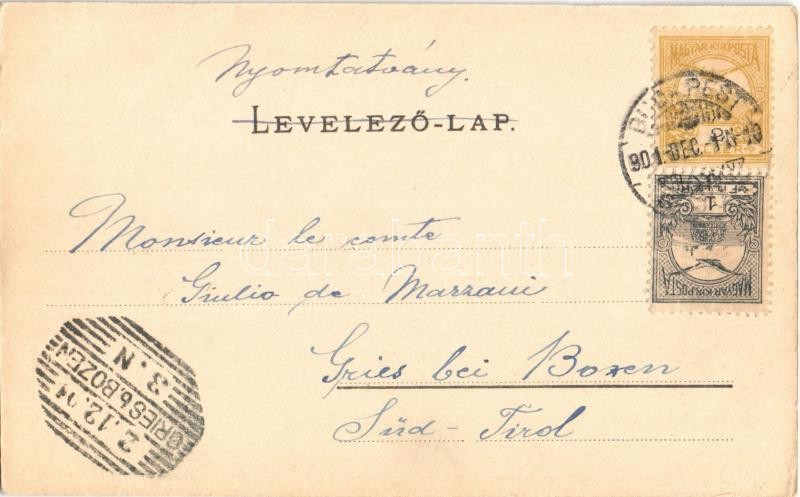 Nyomtatvány.
LEVELEZŐ-LAP.
MAGYAR KIR. POSTA
BUDAPEST
901-DEC.-1
1
FILLÉR
MAGYAR KIR. POSTA
Monsieur le comte
Giulio de Marzani
Gries bei Bozen
Süd-Tirol
GRIES b. BOZEN
2.12.01
3.N
darabanth